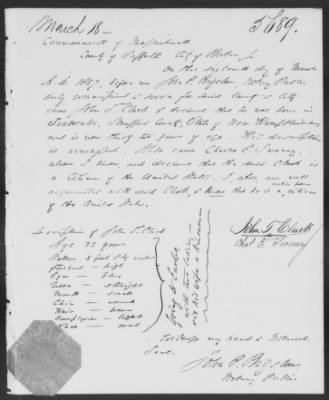 March 18 —
5189.
Commonwealth of Massachusetts
County of Suffolk City of Boston
On this sixteenth day of March
A.D. 1857, before me John P. Bigelow, Notary Public
duly commissioned & sworn for said County & City
came John T. Clark & declared that he was born in
Strafford County, State of New Hampshire
and is now thirty two years of age. His description
is annexed. Also came Charles E.
whom I know, and declared that the said Clark
is a Citizen of the United States. I, also, am well
acquainted with said Clark, & know that he is a citizen
of the United States.
John T. Clark
Description of John T. Clark
Age 32 years
Stature 5 feet
Forehead — high
Eyes — blue
Nose — straight
Mouth — small
Chin — round
Hair — brown
Complexion — light
Face — oval
going to Cuba
Witness my hand & Notarial
Seal.
John P. Bigelow
Notary Public